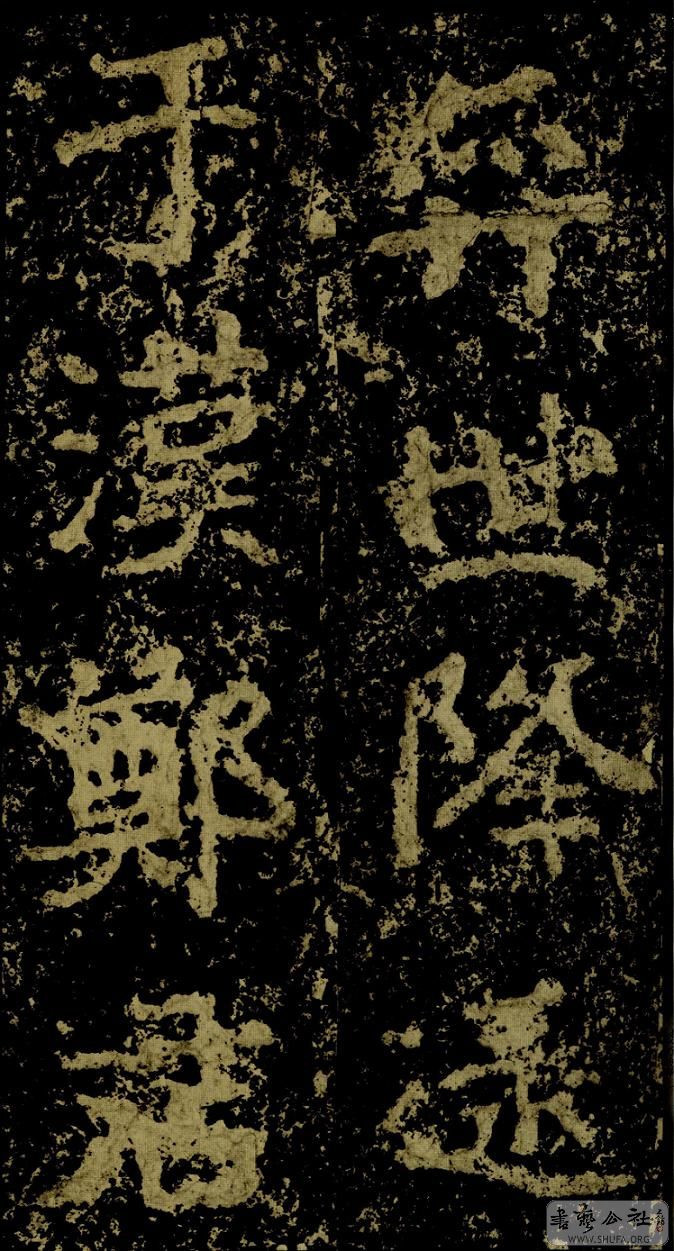 弈世降逮
于漢鄭君
書藝公社
WWW.SHUFA.ORG